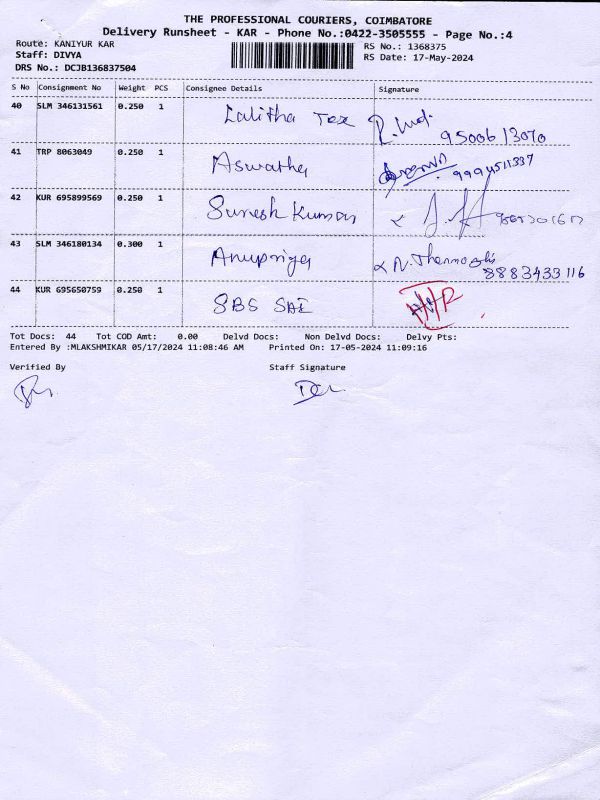 THE PROFESSIONAL COURIERS, COIMBATORE
Delivery Runsheet - KAR - Phone No.:0422-3505555 - Page No.:4
Route: KANIYUR KAR RS No.: 1368375
Staff: DIVYA RS Date: 17-May-2024
DRS No.: DCJB136837504
S No Consignment No Weight PCS Consignee Details Signature
40 SLM 346131561 0.250 1 Lalitha Tex 9500613070
41 TRP 8063049 0.250 1 Aswatha 9994511337
42 KUR 695899569 0.250 1 Suresh Kumar
43 SLM 346180134 0.300 1 Anupriya 8883433116
44 KUR 695650759 0.250 1 SBS SAE
Tot Docs: 44 Tot COD Amt: 0.00 Delvd Docs: Non Delvd Docs: Delvy Pts:
Entered By :MLAKSHMIKAR 05/17/2024 11:08:46 AM Printed On: 17-05-2024 11:09:16
Verified By Staff Signature